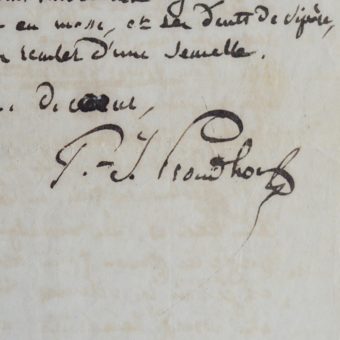 en masse, et ses dents de vipère,
d'une semelle.
de cœur,
P.-J. Proudhon